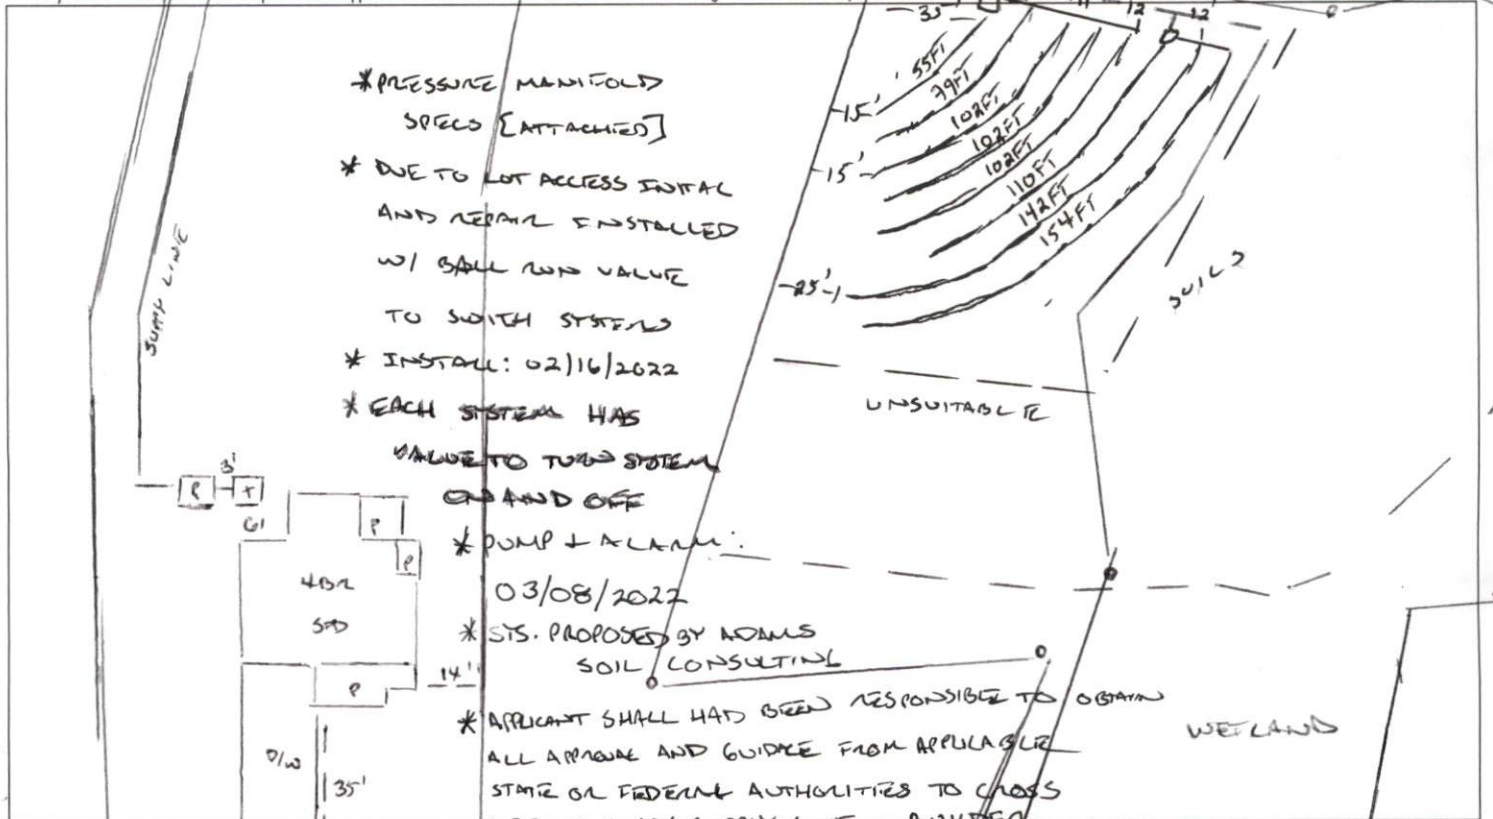 30
12
12
55FT
79FT
102FT
102FT
102FT
110FT
142FT
154FT
15'
15'
25'
* PRESSURE MANIFOLD
SPECS [ATTACHED]
* DUE TO LOT ACCESS INITAL
AND REPAIR INSTALLED
W/ BALL RUN VALUE
TO SWITH SYSTEMS
* INSTALL: 02/16/2022
* EACH SYSTEM HAS
VALUE TO TURN SYSTEM
ON AND OFF
* PUMP & ALARM:
03/08/2022
* SYS. PROPOSED BY ADAMS
SOIL CONSULTING
* APPLICANT SHALL HAD BEEN RESPONSIBLE TO OBTAIN
ALL APPROVAL AND GUIDACE FROM APPLICABLE
STATE OR FEDERAL AUTHORITIES TO CROSS
SUPPLY LINE
SOILS
UNSUITABLE
WETLAND
P
3'
T
6'
P
P
4BR
SFD
P
14'
D/W
35'